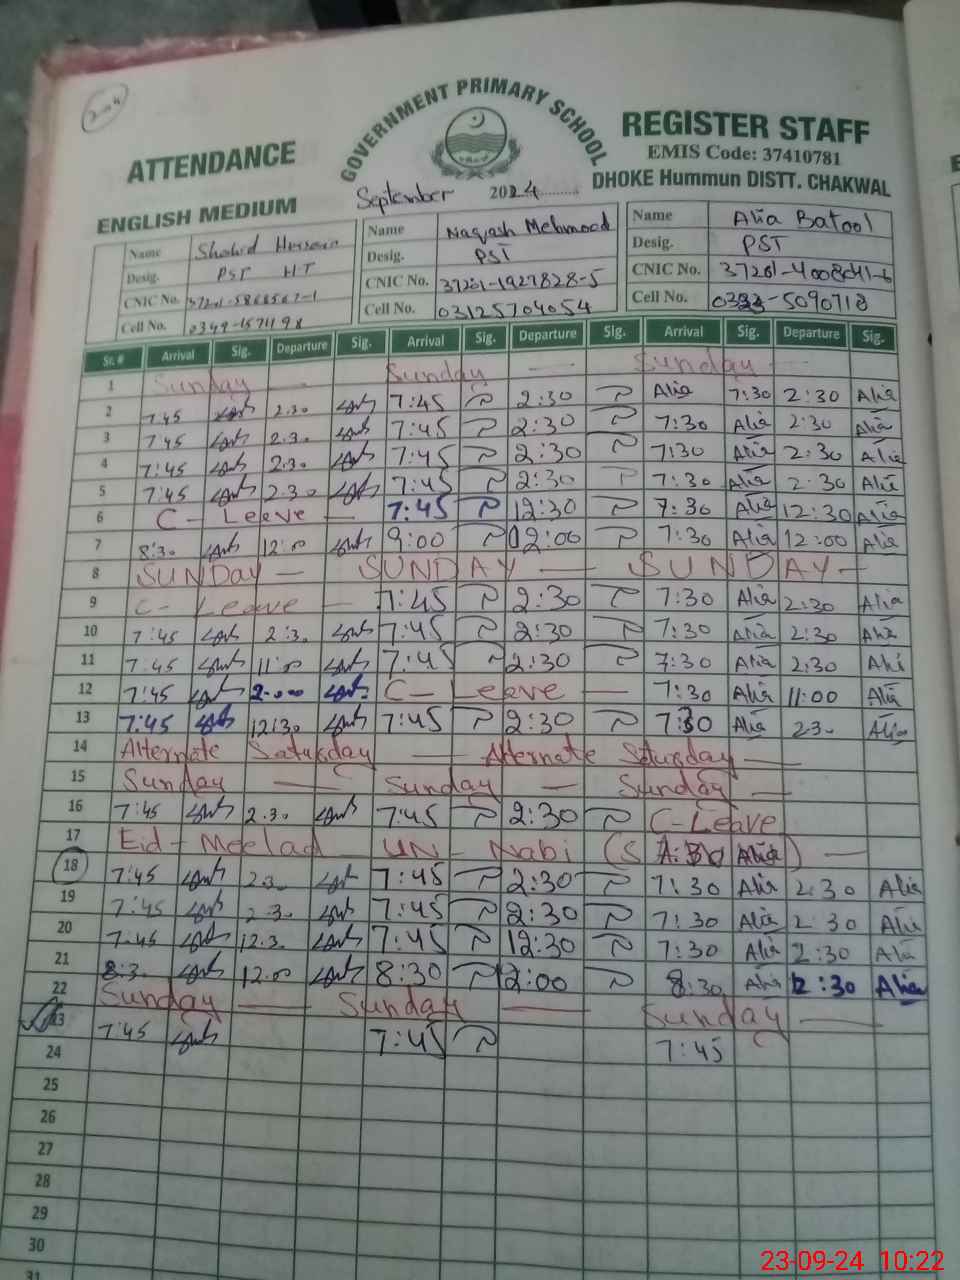 GOVERNMENT PRIMARY SCHOOL
ATTENDANCE REGISTER STAFF
EMIS Code: 37410781
September 2024 DHOKE Hummun DISTT. CHAKWAL
ENGLISH MEDIUM
Name Shahid Name Naqash Mehmood Name Alia Batool
Desig. PST HT Desig. PST Desig. PST
CNIC No. CNIC No. 37201-1927828-5 CNIC No.
Cell No. Cell No. 03125704054 Cell No.
Sr. # Arrival Sig. Departure Sig. Arrival Sig. Departure Sig. Arrival Sig. Departure Sig.
1 Sunday Sunday Sunday
2 7:45 2:30 7:45 2:30 Alia 7:30 2:30 Alia
3 7:45 2:30 7:45 2:30 7:30 Alia 2:30 Alia
4 7:45 2:30 7:45 2:30 7:30 Alia 2:30 Alia
5 7:45 2:30 7:45 2:30 7:30 Alia 2:30 Alia
6 C-Leeve 7:45 12:30 7:30 Alia 12:30 Alia
7 8:30 12:00 9:00 12:00 7:30 Alia 12:00 Alia
8 SUNDay SUNDAY SUNDAY
9 C-Leeve 7:45 2:30 7:30 Alia 2:30 Alia
10 7:45 2:30 7:45 2:30 7:30 Alia 2:30 Alia
11 7:45 11:00 7:45 2:30 7:30 Alia 2:30 Ali
12 7:45 2:00 C-Leeve 7:30 Alia 11:00 Alia
13 7:45 12:30 7:45 2:30 7:30 Alia 2:30 Alia
14 Alternate Saturday Alternate Saturday
15 Sunday Sunday Sunday
16 7:45 2:30 7:45 2:30 C-Leave
17 Eid-Meelad UN-Nabi
18 7:45 2:30 7:45 2:30 7:30 Alia 2:30 Alia
19 7:45 2:30 7:45 2:30 7:30 Alia 2:30 Alia
20 7:45 12:30 7:45 12:30 7:30 Alia 2:30 Alia
21 8:30 12:00 8:30 12:00 8:30 Alia 2:30 Alia
22 Sunday Sunday Sunday
23 7:45 7:45 7:45
24
25
26
27
28
29
30
31
23-09-24 10:22